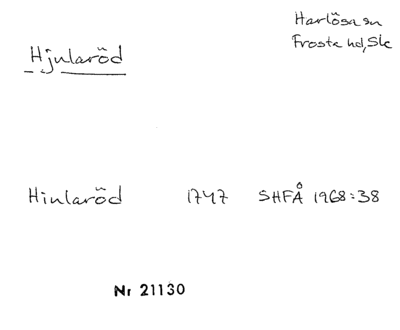 Harlösa sn
Frosta hd, Sk
Hjularöd
Hiularöd 1747 SHFÅ 1968:38
Nr 21130